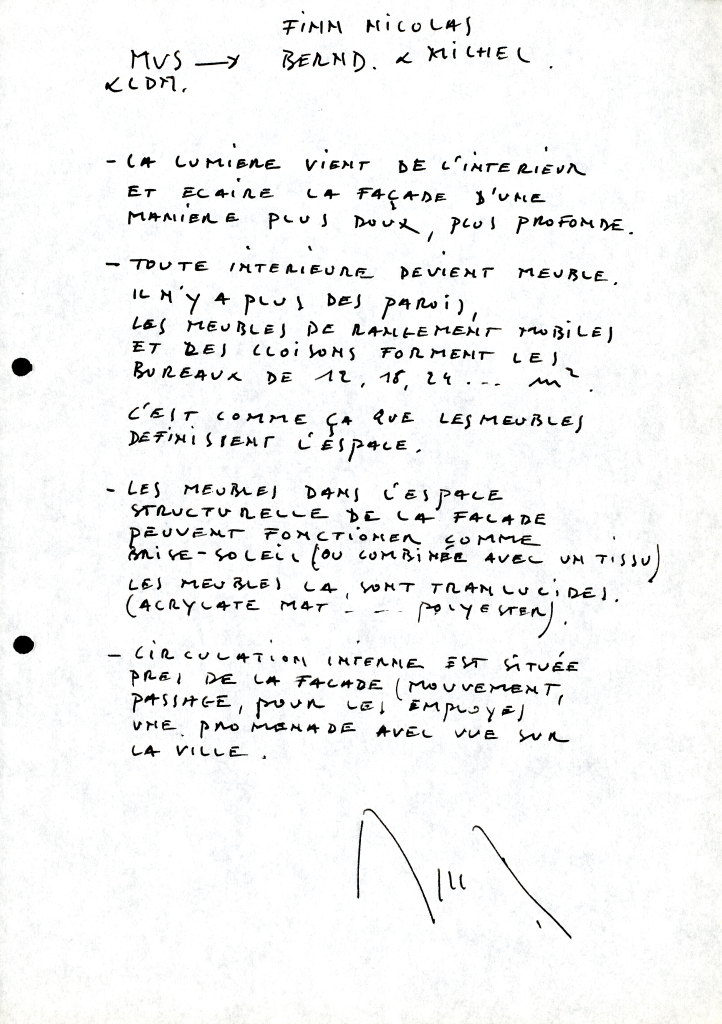 FINN NICOLAS
MVS → BERND. & MICHEL.
& LDM.
- LA LUMIERE VIENT DE L'INTERIEUR
ET ECAIRE LA FAÇADE D'UNE
MANIERE PLUS DOUX, PLUS PROFONDE.
- TOUTE INTERIEURE DEVIENT MEUBLE.
IL N'Y A PLUS DES PAROIS,
LES MEUBLES DE RANGEMENT MOBILES
ET DES CLOISONS FORMENT LES
BUREAUX DE 12, 18, 24 ... m².
C'EST COMME ÇA QUE LES MEUBLES
DEFINISSENT L'ESPACE.
- LES MEUBLES DANS L'ESPACE
STRUCTURELLE DE LA FACADE
PEUVENT FONCTIONER COMME
BRISE-SOLEIL (OU COMBINÉE AVEC UN TISSU)
LES MEUBLES LA, SONT TRANLUCIDES.
(ACRYLATE MAT - - - POLYESTER).
- CIRCULATION INTERNE EST SITUÉE
PRES DE LA FACADE (MOUVEMENT,
PASSAGE, POUR LES EMPLOYES
UNE PROMENADE AVEC VUE SUR
LA VILLE.